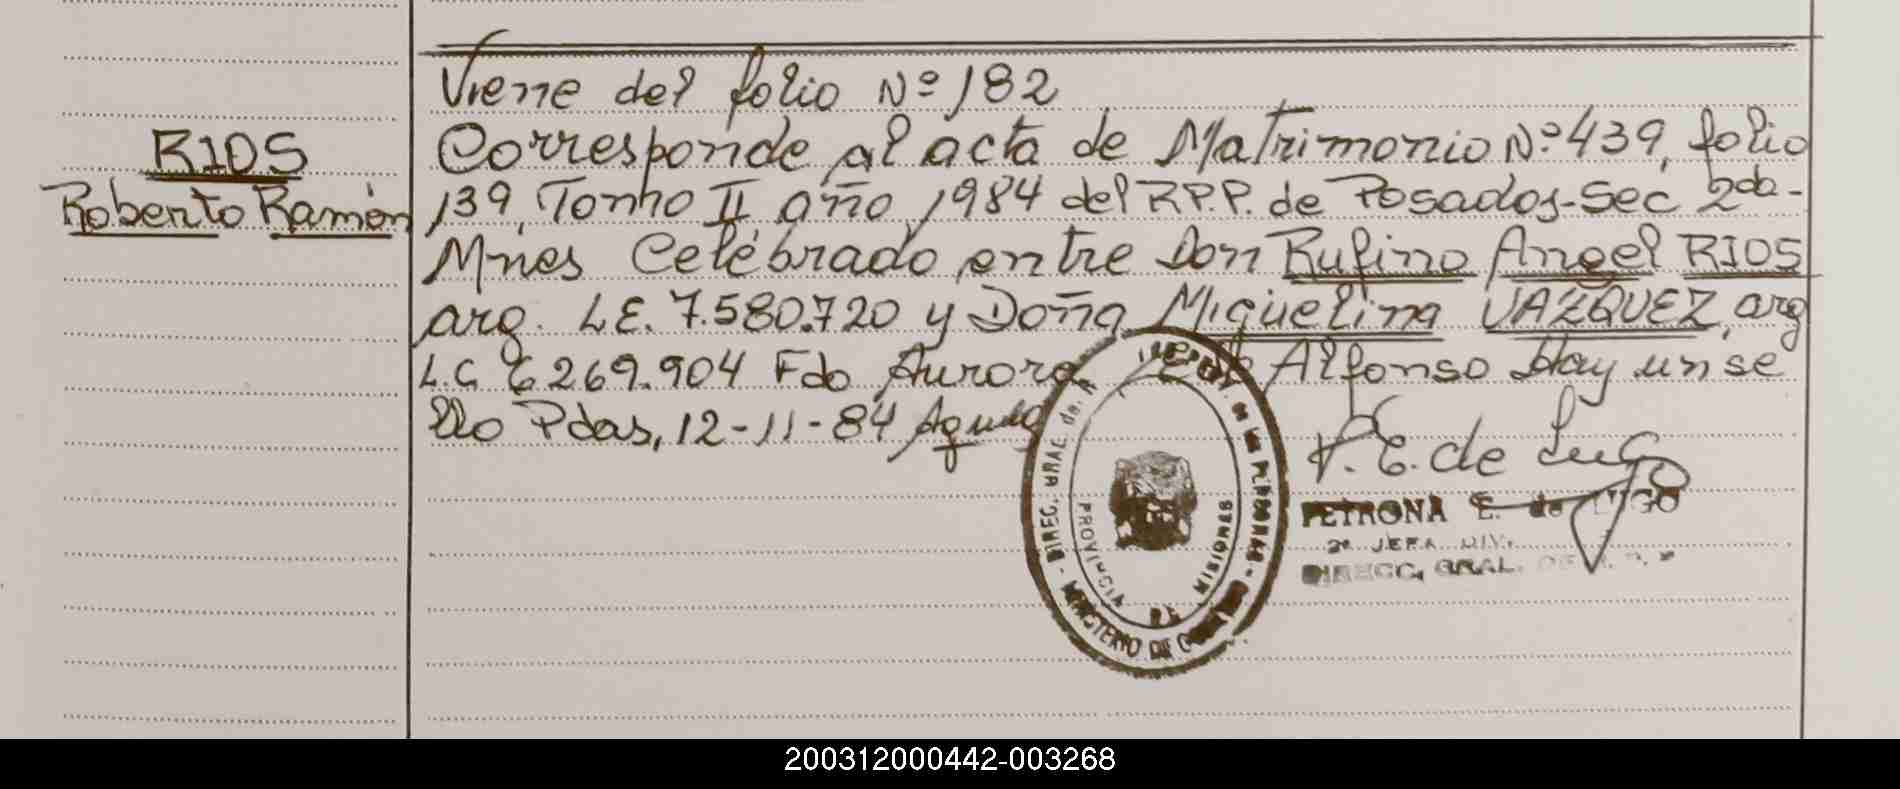 Viene del folio Nº 182
RIOS
Roberto Ramón
Corresponde al acta de Matrimonio Nº 439, folio
139, Tomo II año 1984 del R.P.P. de Posadas-Sec 2da-
Mnes Celebrado entre Don Rufino Angel RIOS
arg. L.E. 7.580.720 y Doña Miguelina VAZQUEZ, arg
L.C 6.269.904 Fdo Aurora de Alfonso Hay un se
llo Pdas, 12-11-84
P. E. de Lugo
PETRONA E. de LUGO
2ª JEFA DIV.
DIRECC. GRAL. DE
DIREC. GRAL. de DE LAS PERSONAS - MINISTERIO DE GOBIERNO
PROVINCIA DE MISIONES
200312000442-003268